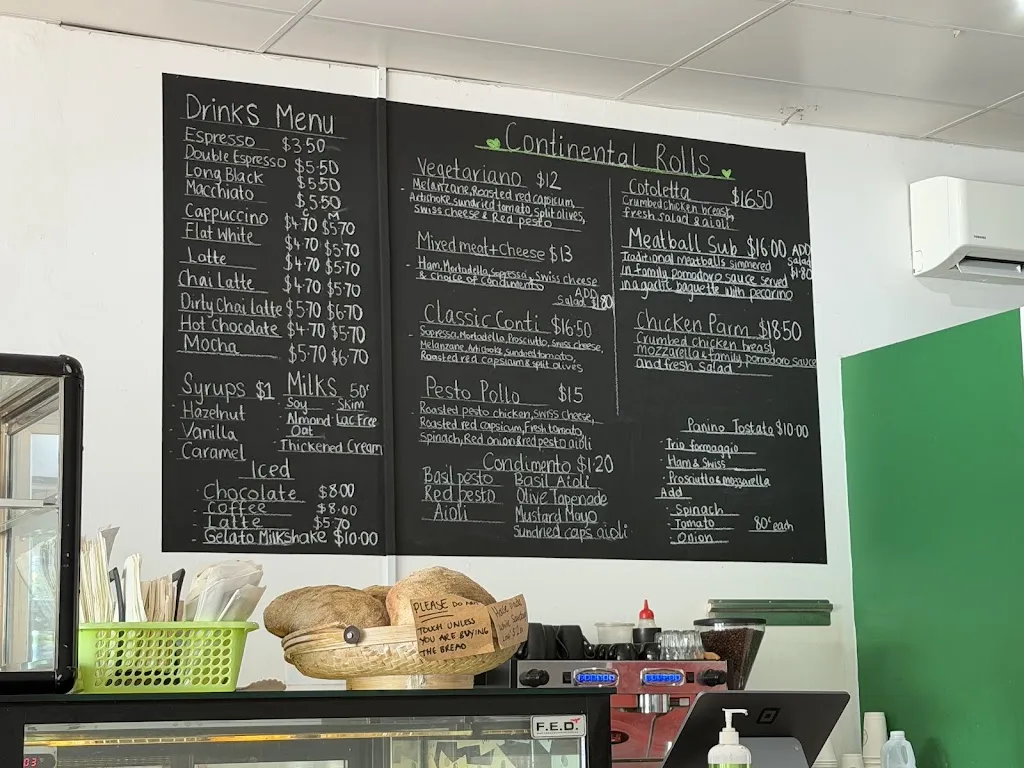 Drinks Menu
Espresso $3.50
Double Espresso $5.50
Long Black $5.50
Macchiato $5.50
C M
Cappuccino $4.70 $5.70
Flat White $4.70 $5.70
Latte $4.70 $5.70
Chai Latte $4.70 $5.70
Dirty Chai latte $5.70 $6.70
Hot Chocolate $4.70 $5.70
Mocha $5.70 $6.70
Syrups $1
- Hazelnut
- Vanilla
- Caramel
Milks 50¢
- Soy - Skim
- Almond Lac Free
- Oat
- Thickened Cream
Iced
- Chocolate $8.00
- Coffee $8.00
- Latte $5.70
- Gelato Milkshake $10.00
Continental Rolls
Vegetariano $12
- Melanzane, Roasted red capsicum,
Artichoke, sundried tomato, split olives,
Swiss cheese & Red pesto
Mixed meat + Cheese $13
- Ham, Mortadella, Sopressa, Swiss cheese
& Choice of Condimento
ADD
Salad $1.80
Classic Conti $16.50
Sopressa, Mortadella, Prosciutto, Swiss cheese,
Melanzane, Artichoke, Sundried tomato,
Roasted red capsicum & split olives
Pesto Pollo $15
Roasted pesto chicken, Swiss cheese,
Roasted red capsicum, Fresh tomato,
Spinach, Red onion & red pesto aioli
Condimento $1.20
Basil pesto Basil Aioli
Red pesto Olive Tapenade
Aioli Mustard Mayo
Sundried caps aioli
Cotoletta $16.50
Crumbed chicken breast,
fresh salad & aioli
Meatball Sub $16.00 ADD
Salad
$1.80
Traditional meatballs simmered
in family pomodoro sauce served
in a garlic baguette with pecorino
Chicken Parm $18.50
Crumbed chicken breast,
mozzarella & family pomodoro sauce
and fresh salad
Panino Tostato $10.00
- Trio formaggio
- Ham & Swiss
- Prosciutto & mozzarella
Add
- Spinach
- Tomato 80¢ each
- Onion
PLEASE DO NOT
TOUCH UNLESS
YOU ARE BUYING
THE BREAD
F.E.D.
TOSHIBA